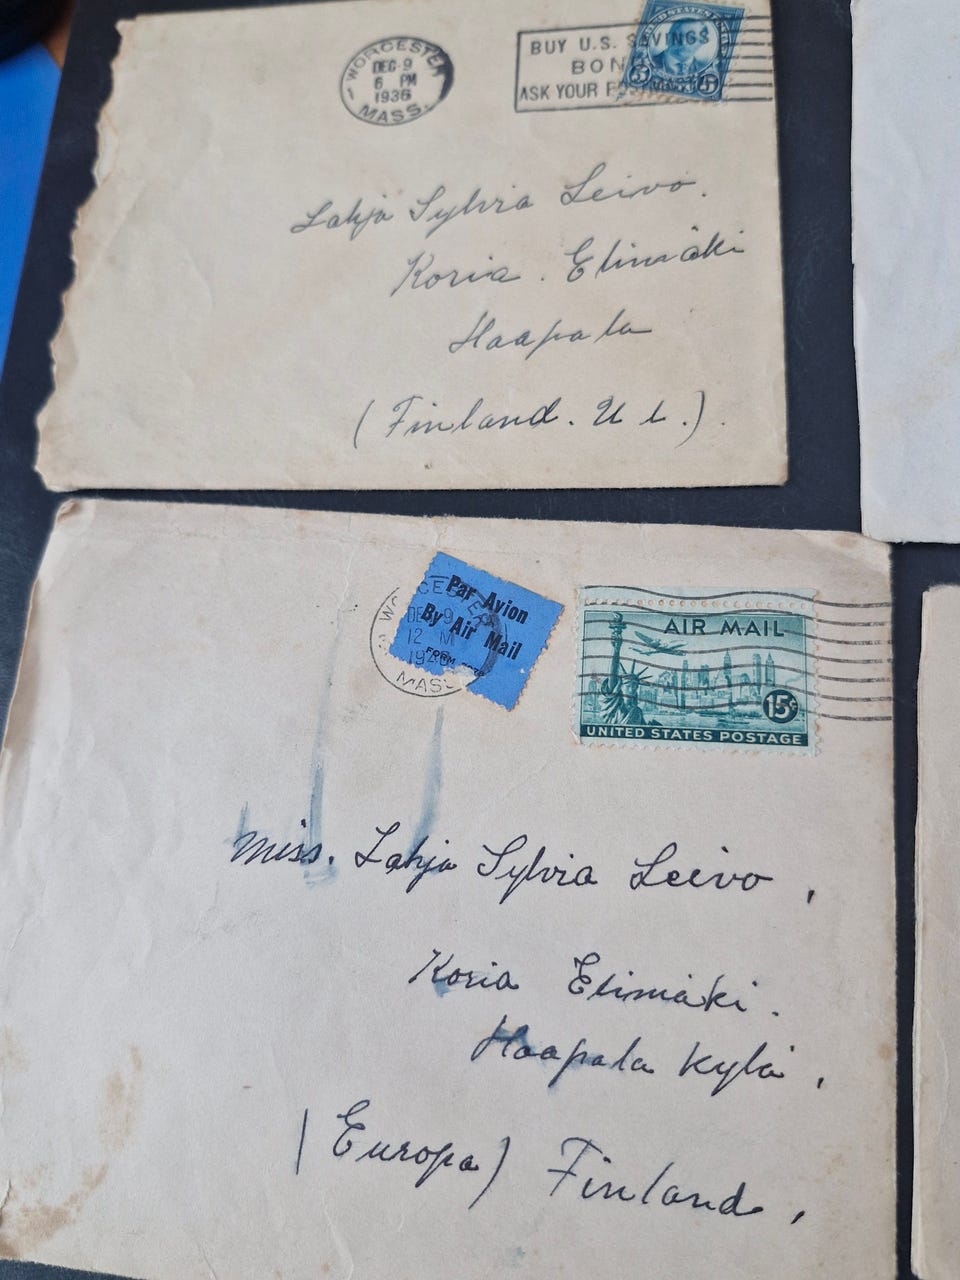 WORCESTER
DEC 9
6 PM
1936
MASS.
BUY U.S. SAVINGS
BON
ASK YOUR POST
UNITED STATES
5 5
Lahja Sylvia Leivo.
Koria. Elimäki
Haapala
(Finland. U L.).
WORCESTER
DEC 9
12 M
MASS
Par Avion
By Air Mail
FORM
AIR MAIL
15¢
UNITED STATES POSTAGE
Miss. Lahja Sylvia Leivo,
Koria Elimäki.
Haapala Kylä,
(Europa) Finland,